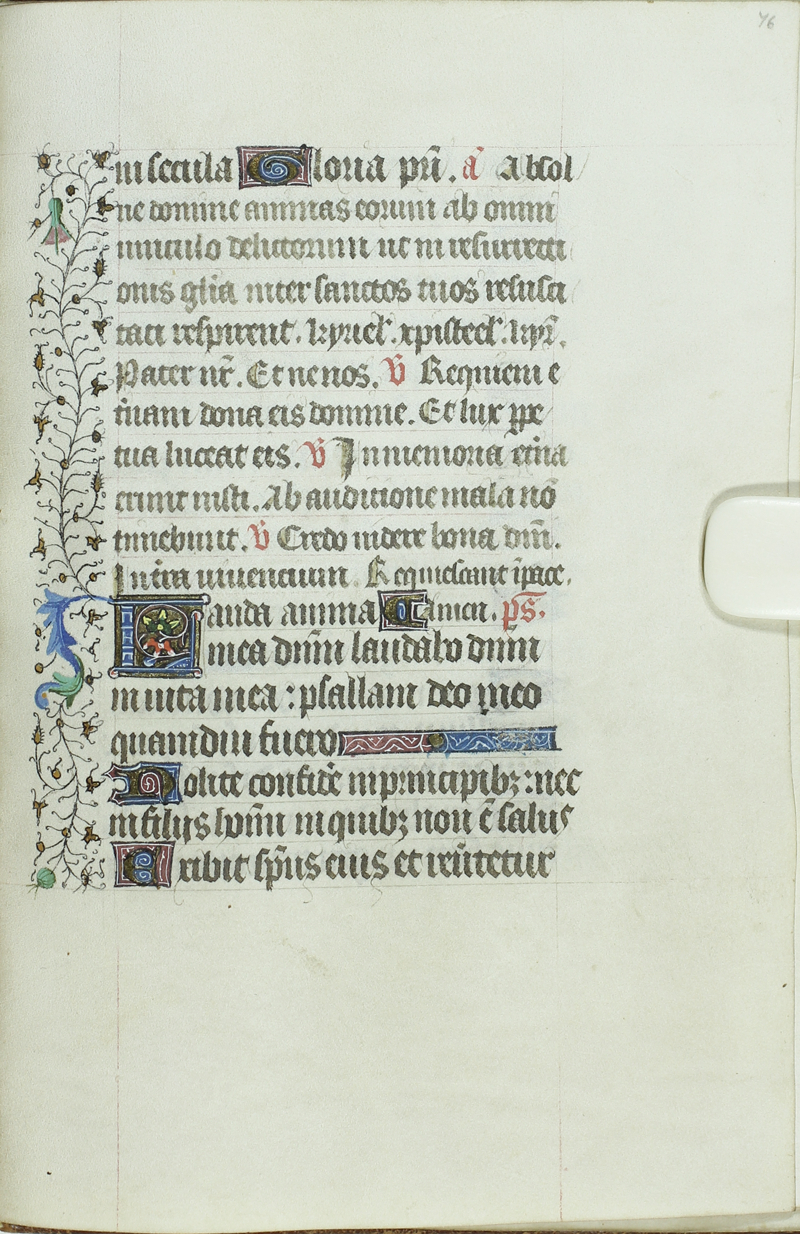 76
in secula Gloria pri̅. a̅ Absol
ue domine animas eorum ab omni
uinculo delictorum ut in resurrecti
onis gl̅ia inter sanctos tuos resusci
tati respirent. kyriel'. xp̅isteel'. kyr̅.
Pater nr̅. Et ne nos. v̅ Requiem e
t̅nam dona eis domine. Et lux ꝑpe
tua luceat eis. v̅ In memoria et̅na
erunt iusti. Ab auditione mala no̅
timebunt. v̅ Credo uidere bona dni̅.
In te̅ra uiuencium. Requiescant i̅ pace.
Lauda anima Amen. ps̅.
mea dn̅m laudabo dn̅m
in uita mea : psallam deo meo
quamdiu fuero
Nolite confide̅ in principibꝫ : nec
in filiis ho̅m in quibꝫ non e̅ salus
Exibit sp̅us eius et reu̅tetur